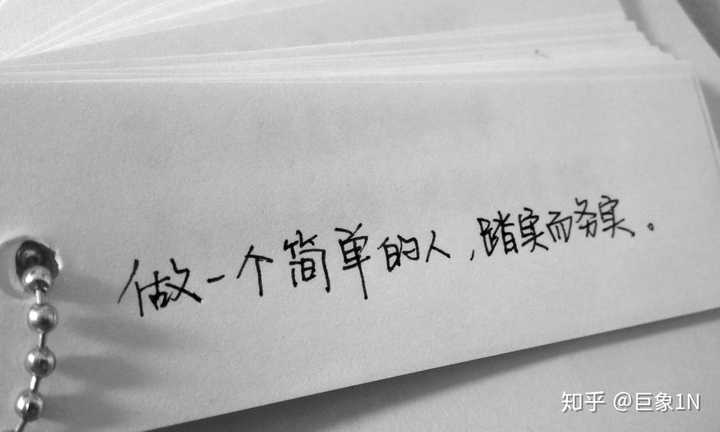 做一个简单的人，踏实而务实。
知乎 @巨象1N